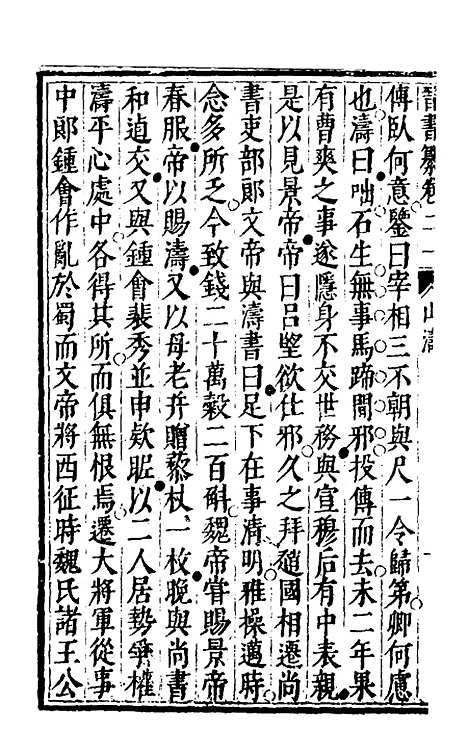 晉書纂卷二 山濤
傳臥何意鑒曰宰相三不朝與尺一令歸第卿何慮
也濤曰咄石生無事馬蹄間邪投傳而去未二年果
有曹爽之事遂隱身不交世務與宣穆后有中表親
是以見景帝帝曰呂望欲仕邪久之拜趙國相遷尚
書吏部郎文帝與濤書曰足下在事清明雅操邁時
念多所乏今致錢二十萬穀二百斛魏帝甞賜景帝
春服帝以賜濤又以母老并贈藜杖一枚晚與尚書
和逌交又與鍾會裴秀並申欵昵以二人居勢爭權
濤平心處中各得其所而俱無恨焉遷大將軍從事
中郎鍾會作亂於蜀而文帝將西征時魏氏諸王公